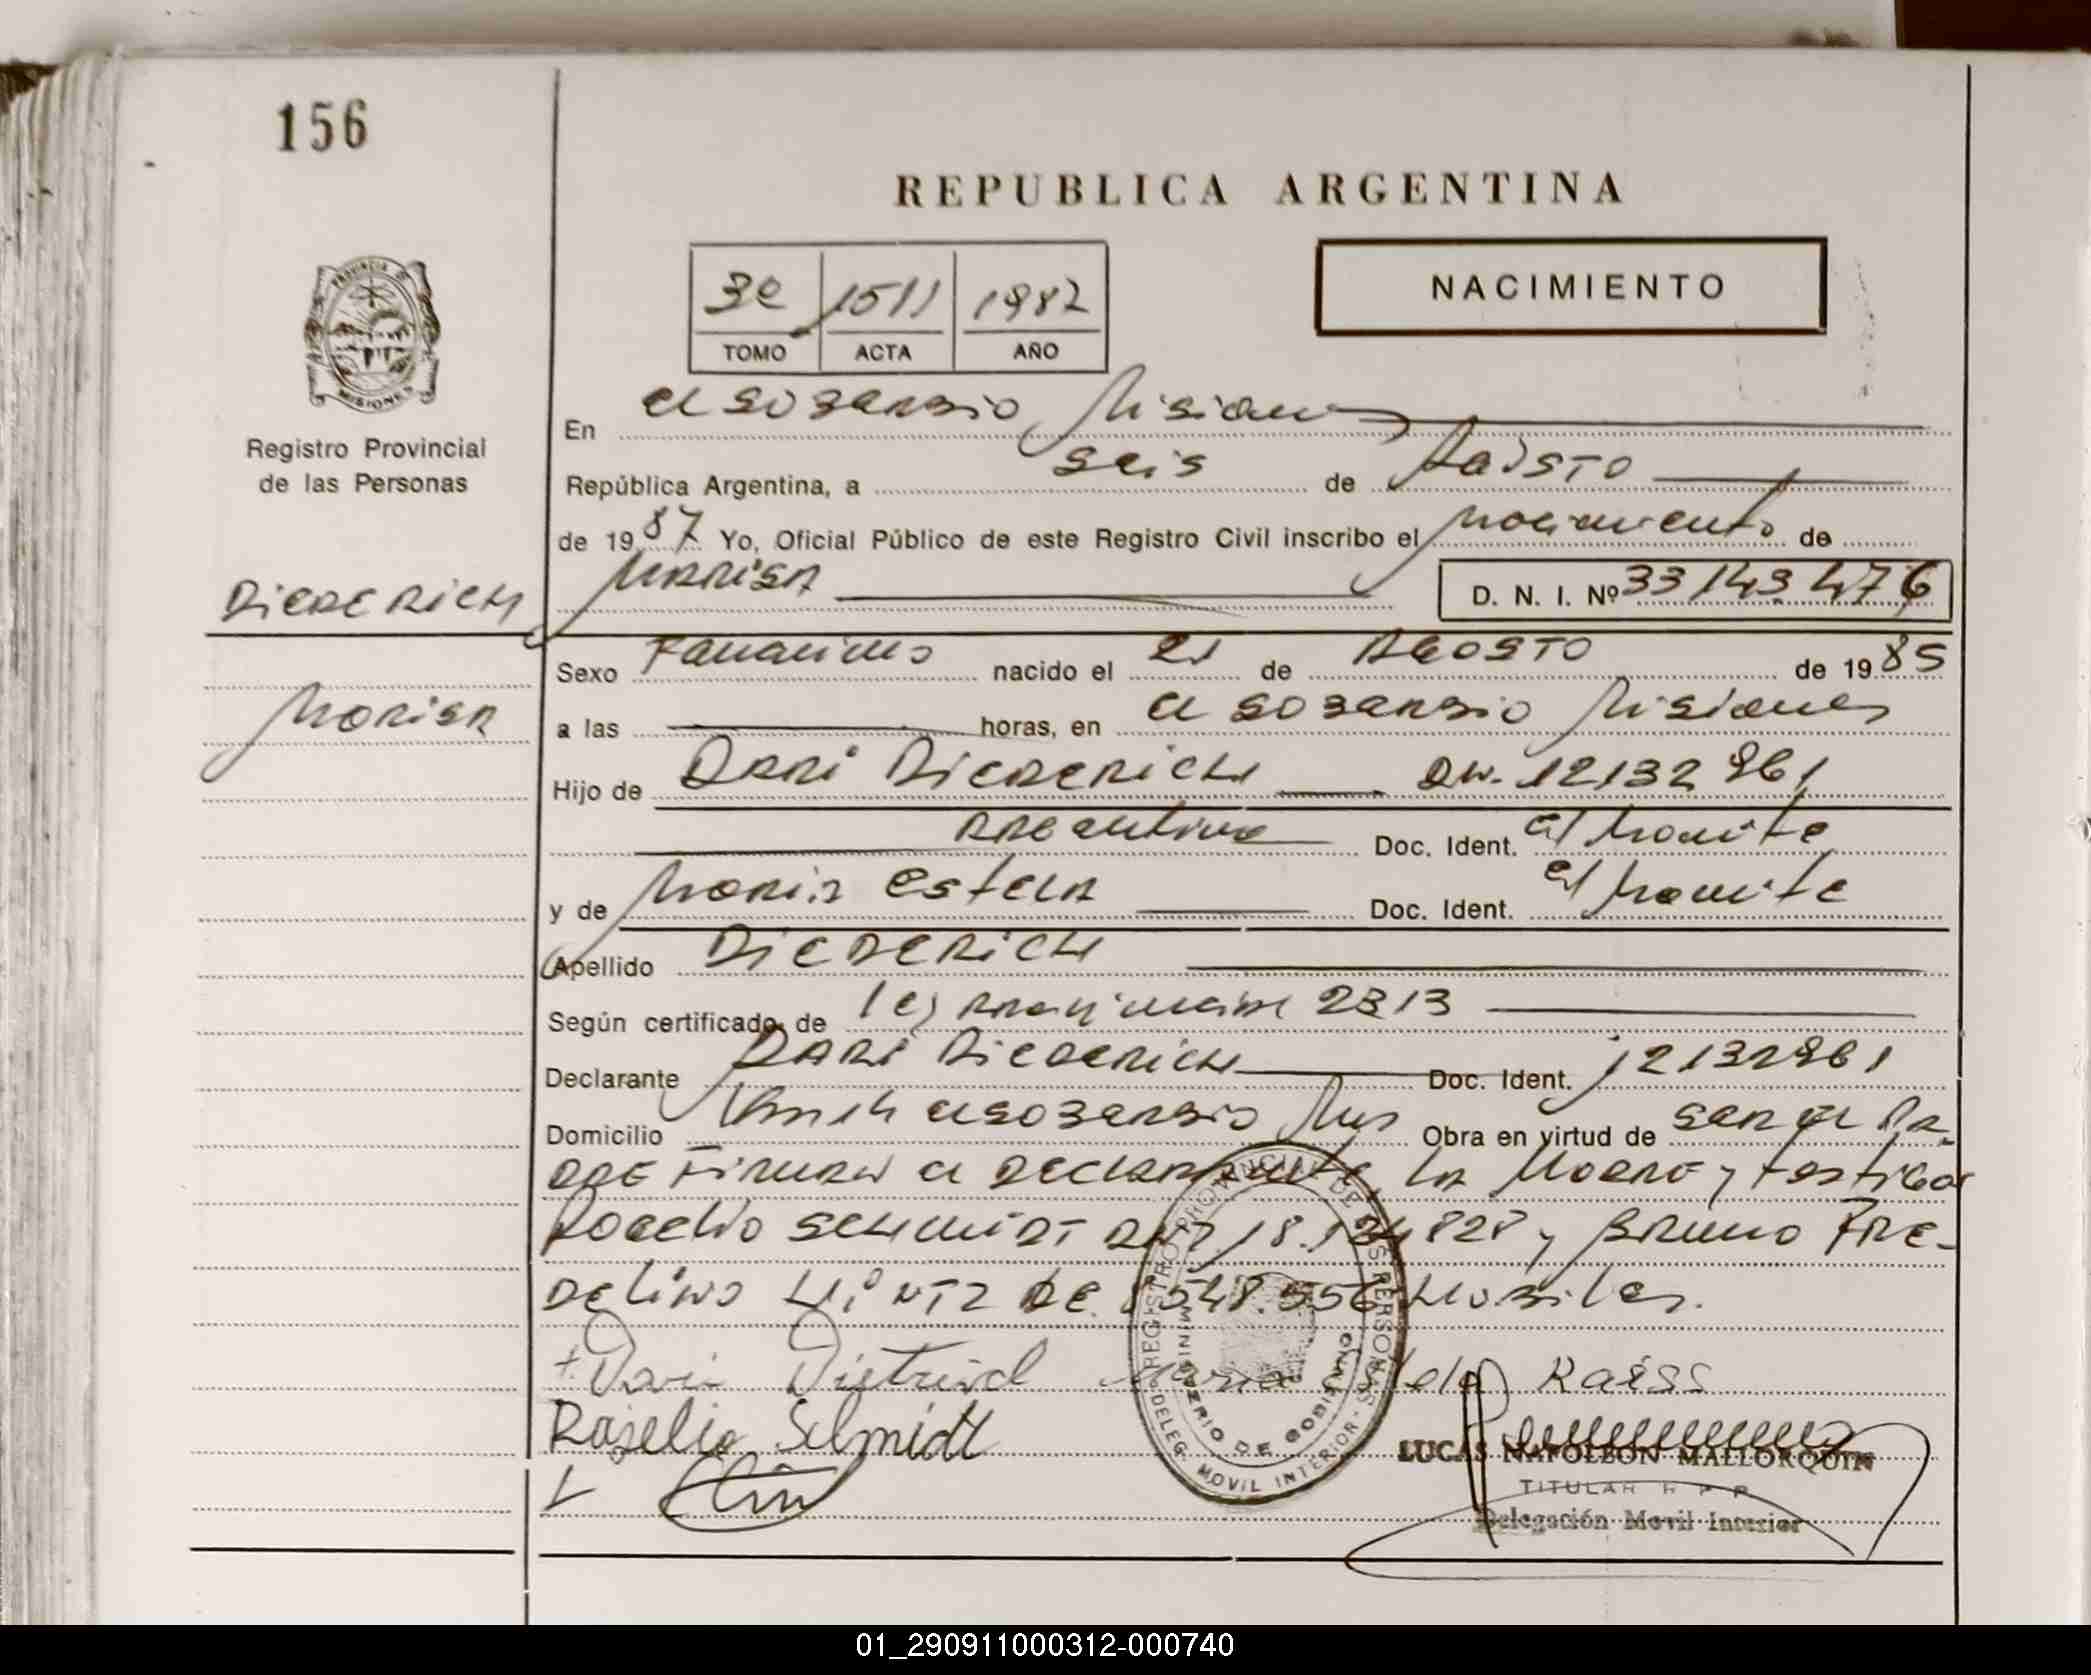 156
REPUBLICA ARGENTINA
3e 1511 1987
TOMO ACTA AÑO
NACIMIENTO
PROVINCIA DE MISIONES
Registro Provincial
de las Personas
En el soberbio Misiones
República Argentina, a seis de Agosto
de 19 87 Yo, Oficial Público de este Registro Civil inscribo el nacimiento de
DIEDERICH
Marisa D. N. I. Nº 33143476
Sexo Femenino nacido el 21 de AGOSTO de 19 85
Marisa
a las horas, en el soberbio Misiones
Hijo de Dari DIEDERICH DN. 12132861
Argentina Doc. Ident. el Tramite
y de Maria estela Doc. Ident. el Tramite
Apellido DIEDERICH
Según certificado de ley 2313
Declarante Dari DIEDERICH Doc. Ident. 12132861
Domicilio el soberbio Mis Obra en virtud de ser el Pa-
dre Firman el Declarante, la Madre y testigos
Rogelio Schmidt DNI 18.134828 y Bruno Fre-
delino Hintz DE. 8548.556 Habiles.
+ Dari Dietrich Maria Estela Raiss
Rogelio Schmidt
REGISTRO PROVINCIAL DE LAS PERSONAS
MINISTERIO DE GOBIERNO
DELEG. MOVIL INTERIOR
LUCAS NAPOLEON MALLORQUIN
TITULAR R P P
Delegación Movil Interior
01_290911000312-000740